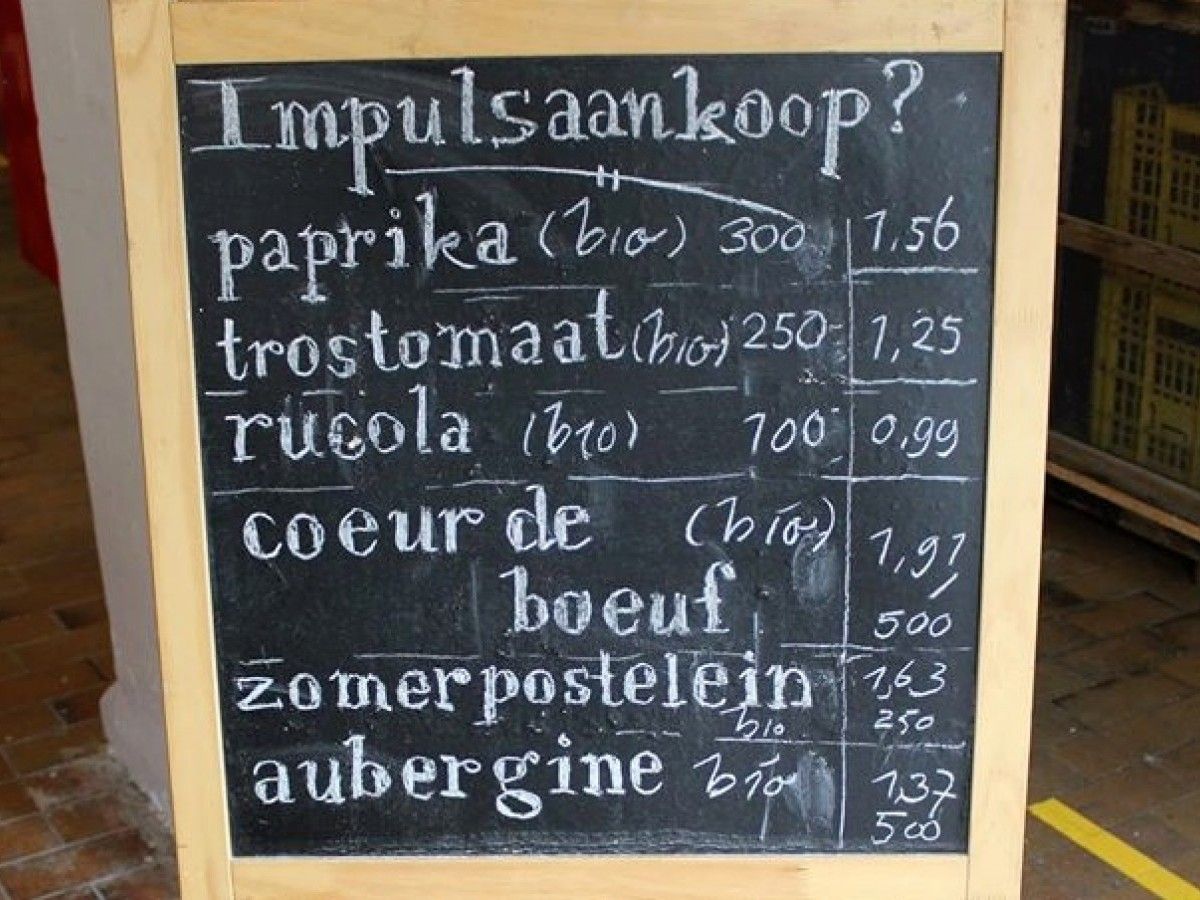 Impulsaankoop?
paprika (bio) 300 1,56
trostomaat (bio) 250 1,25
rucola (bio) 100 0,99
coeur de (bio) 1,91
boeuf 500
zomerpostelein 1,63
bio 250
aubergine bio 1,37
500